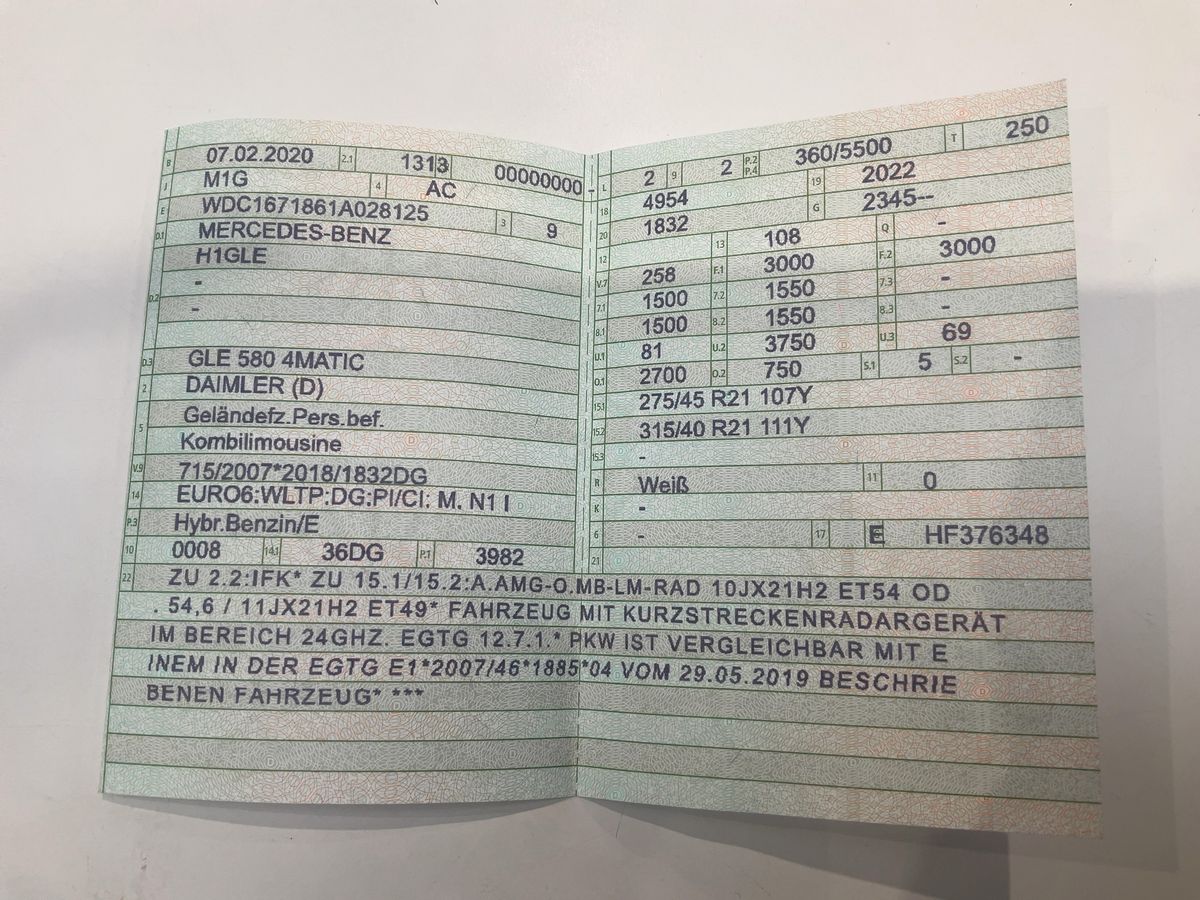 B 07.02.2020 2.1 1313 00000000 -
J M1G 4 AC
E WDC1671861A028125 3 9
D.1 MERCEDES-BENZ
H1GLE
D.2 -
-
D.3 GLE 580 4MATIC
2 DAIMLER (D)
5 Geländefz.Pers.bef.
Kombilimousine
V.9 715/2007*2018/1832DG
14 EURO6:WLTP:DG:PI/CI: M, N1 I
P.3 Hybr.Benzin/E
10 0008 14.1 36DG P.1 3982
L 2 9 2 P.2 P.4 360/5500 T 250
18 4954 19 2022
20 1832 G 2345--
12 13 108 Q -
V.7 258 F.1 3000 F.2 3000
7.1 1500 7.2 1550 7.3 -
8.1 1500 8.2 1550 8.3 -
U.1 81 U.2 3750 U.3 69
O.1 2700 O.2 750 S.1 5 S.2 -
15.1 275/45 R21 107Y
15.2 315/40 R21 111Y
15.3 -
R Weiß 11 0
K -
6 - 17 E HF376348
21
22 ZU 2.2:IFK* ZU 15.1/15.2:A.AMG-O.MB-LM-RAD 10JX21H2 ET54 OD
. 54,6 / 11JX21H2 ET49* FAHRZEUG MIT KURZSTRECKENRADARGERÄT
IM BEREICH 24GHZ. EGTG 12.7.1.* PKW IST VERGLEICHBAR MIT E
INEM IN DER EGTG E1*2007/46*1885*04 VOM 29.05.2019 BESCHRIE
BENEN FAHRZEUG* ***